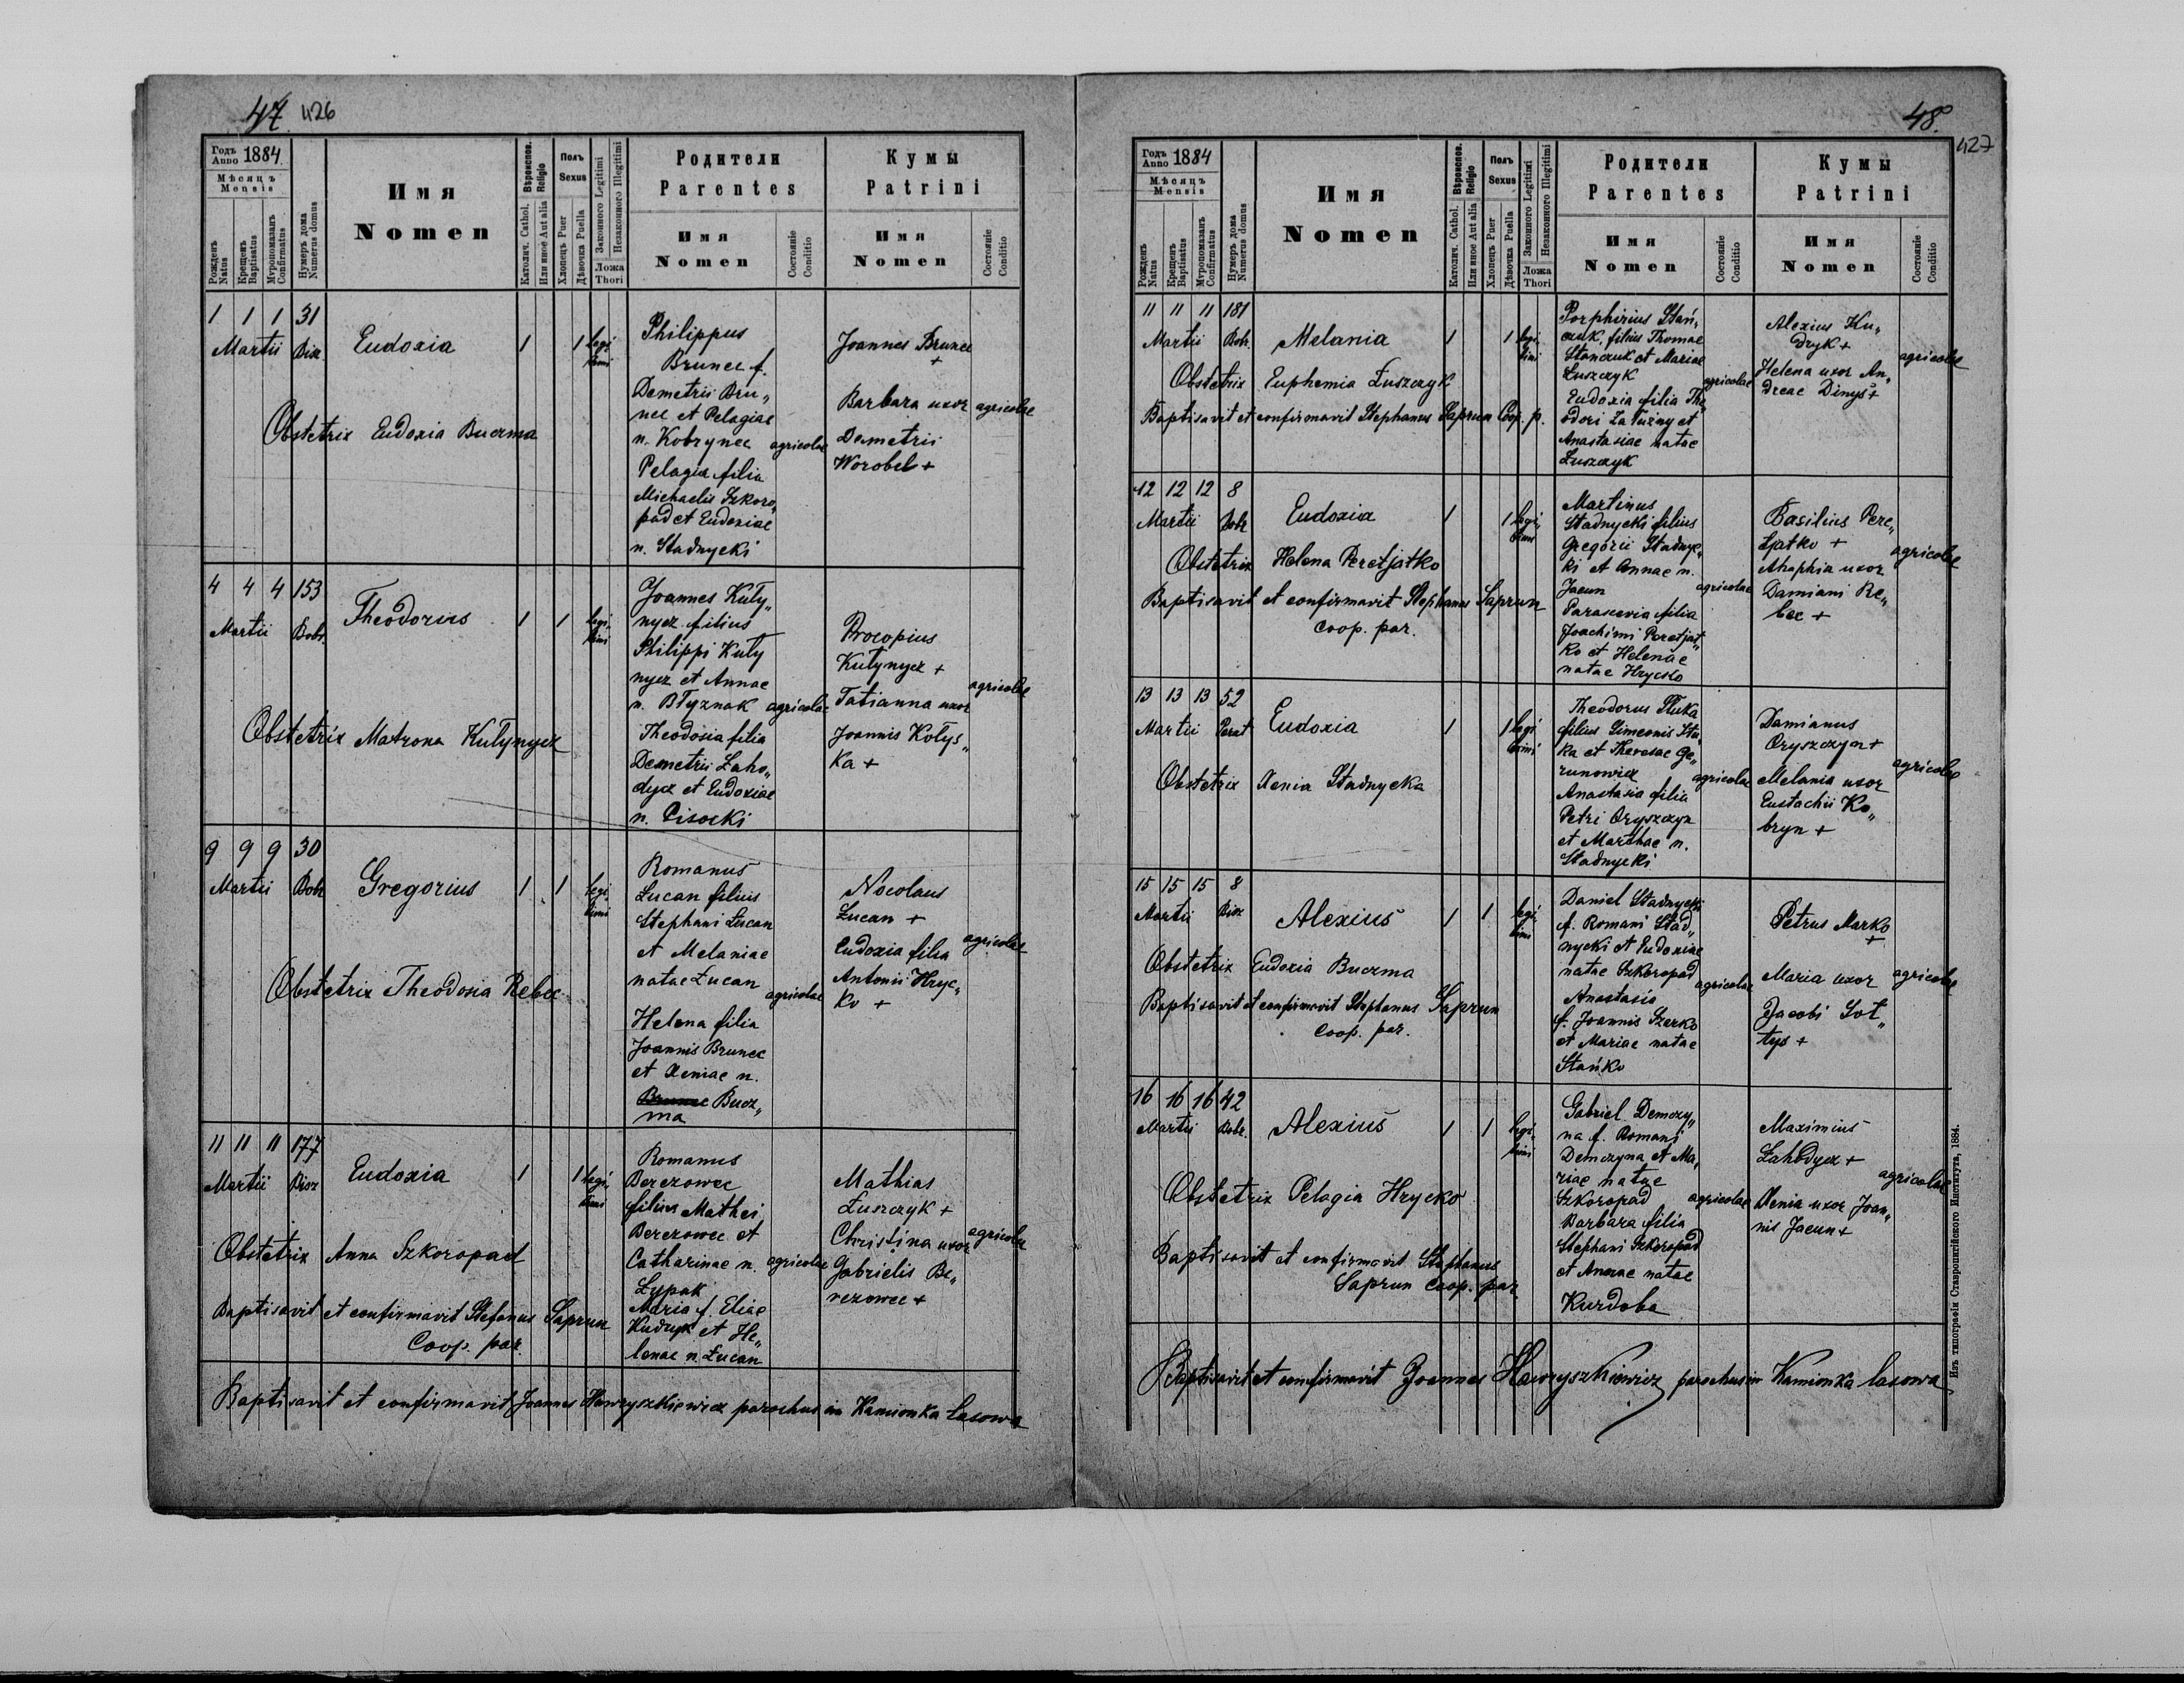 47. 426
Годъ Anno 1884.
Мѣсяцъ
Mensis
Рожденъ Natus
Крещенъ Baptisatus
Мѵропомазанъ Confirmatus
Нумеръ дома Numerus domus
Имя
Nomen
Вѣроиспов. Religio
Католич. Cathol.
Или иное Aut alia
Полъ
Sexus
Хлопецъ Puer
Дѣвочка Puella
Законного Legitimi
Незаконного Illegitimi
Ложа
Thori
Родители
Parentes
Имя
Nomen
Состояніе Conditio
Кумы
Patrini
Имя
Nomen
Состояніе Conditio
1 1 1 31
Martii
Eudoxia 1 1 legi-
timi
Philippus
Brunec f.
Demetrii Bru„
nec et Pelagiae
n. Kobrynec agricolae
Pelagia filia
Michaelis Szkoro„
pad et Eudoxiae
n. Stadnycki
Joannes Brunec
+
Barbara uxor agricolae
Demetrii
Worobel +
Obstetrix Eudoxia Buczma
4 4 4 153
Martii Bobr.
Theodorus 1 1 legi-
timi
Joannes Kuły„
nycz filius
Philippi Kuły
nycz et Annae
n. Błyznak agricolae
Theodosia filia
Demetrii Laho„
dycz et Eudoxiae
n. Cisocki
Procopius
Kułynycz +
agricolae
Tatianna uxor
Joannis Kołys„
ka +
Obstetrix Matrona Kułynycz
9 9 9 30
Martii Bobr
Gregorius 1 1 legi-
timi
Romanus
Łucan filius
Stephani Łucan
et Melaniae
natae Łucan
agricolae
Helena filia
Joannis Brunec
et Xeniae n.
Brunec Bucz„
ma
Nocolaus
Łucan +
Eudoxia filia agricolae
Antonii Hryc„
ko +
Obstetrix Theodosia Rebec
11 11 11 177
Martii Bisz
Eudoxia 1 1 legi-
timi
Romanus
Berezowec
filius Mathei
Berezowec et
Catharinae n. agricolae
Łypak
Maria f. Eliae
Kudryk et He„
lenae n. Łucan
Mathias
Łuszczyk +
Christina uxor agricolae
Gabrielis Be„
rezowec +
Obstetrix Anna Szkoropad
Baptisavit et confirmavit Stefanus Saprun
Coop. par.
Baptisavit et confirmavit Joannes Hawryszkiewicz parochus in Kamionka lasowa
48.
427
Годъ Anno 1884
Мѣсяцъ
Mensis
Рожденъ Natus
Крещенъ Baptisatus
Мѵропомазанъ Confirmatus
Нумеръ дома Numerus domus
Имя
Nomen
Вѣроиспов. Religio
Католич. Cathol.
Или иное Aut alia
Полъ
Sexus
Хлопецъ Puer
Дѣвочка Puella
Законного Legitimi
Незаконного Illegitimi
Ложа
Thori
Родители
Parentes
Имя
Nomen
Состояніе Conditio
Кумы
Patrini
Имя
Nomen
Состояніе Conditio
11 11 11 181
Martii Bobr.
Melania 1 1 legi-
timi
Porphirius Stań„
czuk, filius Thomae
Stanczuk et Mariae
Łuszczyk
agricolae
Eudoxia filia The„
odori Załużny et
Anastasiae natae
Łuszczyk
Alexius Ku„
dryk +
agricolae
Helena uxor An„
dreae Dinys +
Obstetrix Euphemia Łuszczyk
Baptisavit et confirmavit Stephanus Saprun Coop. p.
12 12 12 8
Martii Bobr
Eudoxia 1 1 legi-
timi
Martinus
Stadnycki filius
Gregorii Stadnyc„
ki et Annae n.
Jacun agricolae
Parascevia filia
Joachimi Peretjat„
ko et Helenae
natae Hrycko
Basilius Pere„
tjatko +
agricolae
Ahaphia uxor
Damiani Re„
bec +
Obstetrix Helena Peretjatko
Baptisavit et confirmavit Stephanus Saprun
Coop. par.
13 13 13 52
Martii Perat
Eudoxia 1 1 legi-
timi
Theodorus Stuka
filius Simeonis Stu„
ka et Theresae Ge„
runowicz
agricolae
Anastasia filia
Petri Oryszczyn
et Marthae n.
Stadnycki
Damianus
Oryszczyn +
agricolae
Melania uxor
Eustachii Ko„
bryn +
Obstetrix Xenia Stadnycka
15 15 15 8
Martii Bisz
Alexius 1 1 legi-
timi
Daniel Stadnycki
f. Romani Stad„
nycki et Eudoxiae
natae Szkoropad
agricolae
Anastasia
f. Joannis Szerko
et Mariae natae
Stańko
Petrus Marko
+
Maria uxor agricolae
Jacobi Soł„
tys +
Obstetrix Eudoxia Buczma
Baptisavit et confirmavit Stephanus Saprun
Coop. par.
16 16 16 42
Martii Bobr.
Alexius 1 1 legi-
timi
Gabriel Demczy„
na f. Romani
Demczyna et Ma„
riae natae
Szkoropad agricolae
Barbara filia
Stephani Szkoropad
et Annae natae
Kurdoba
Maximius
Lahodycz +
agricolae
Xenia uxor Joan„
nis Jacun +
Obstetrix Pelagia Hrycko
Baptisavit et confirmavit Stephanus
Saprun Coop. par.
Baptisavit et confirmavit Joannes Hawryszkiewicz parochus in Kamionka lasowa
Изъ типографіи Ставропигійского Института, 1884.